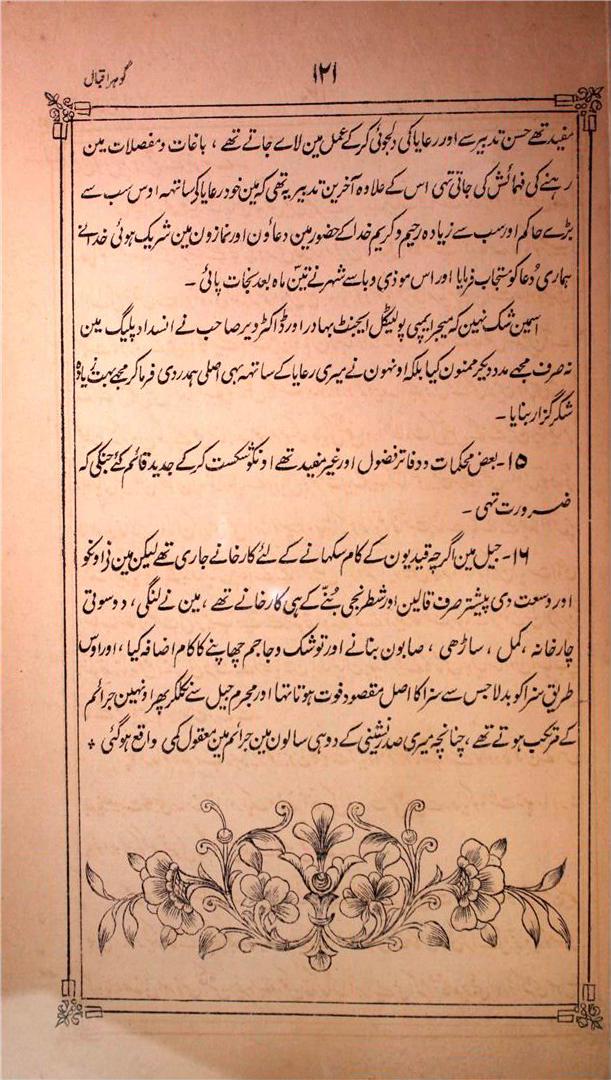 گوہر اقبال
۱۲۱
مفید تھے حسن تدبیر سے اور رعایا کی دلجوئی کر کے عمل مین لاے جاتے تھے ، باغات و مفصلات مین
رہنے کی فہمائش کی جاتی تہی اس کے علاوہ آخرین تدبیر یہ تھی کہ مین خود رعایا کی ساتہہ اوس سب سے
بڑے حاکم اور سب سے زیادہ رحیم و کریم خدا کے حضور مین دعاؤن اور نمازون مین شریک ہوئی خدا نے
ہماری دُعا کو مستجاب فرمایا اور اس موذی وبا سے شہر نے تین ماہ بعد نجات پائی ۔
اسمین شک نہین کہ میجر ایمپی پولیٹکل ایجنٹ بہادر اور ڈاکٹر دیر صاحب نے انسداد پلیگ مین
نہ صرف مجھے مدد دیکر ممنون کیا بلکہ اونہون نے میری رعایا کے ساتہہ بہی اصلی ہمدردی فرما کر مجھے بہت زیادہ
شکر گزار بنایا ۔
۱۵۔ بعض محکمات و دفاتر فضول اور غیر مفید تھے اونکو شکست کر کے جدید قائم کئے جنکی کہ
ضرورت تہی ۔
۱۶۔ جیل مین اگرچہ قیدیون کے کام سکہانے کے لئے کارخانے جاری تھے لیکن مین نے اونکو
اور وسعت دی پیشتر صرف قالین اور شطرنجی بُننے کے ہی کارخانے تھے ، مین نے لنگی ، دوسوتی
چارخانہ ، کمل ، ساڑھی ، صابون بنانے اور توشک و جاجم چھاپنے کا کام اضافہ کیا ، اور اوس
طریق سزا کو بدلا جس سے سزا کا اصل مقصود فوت ہوتا تہا اور مجرم جیل سے نکلکر پھر اونہین جرائم
کے مرتکب ہوتے تھے ، چنانچہ میری صدر نشینی کے دو ہی سالون مین جرائم مین معقول کمی واقع ہو گئی ٭